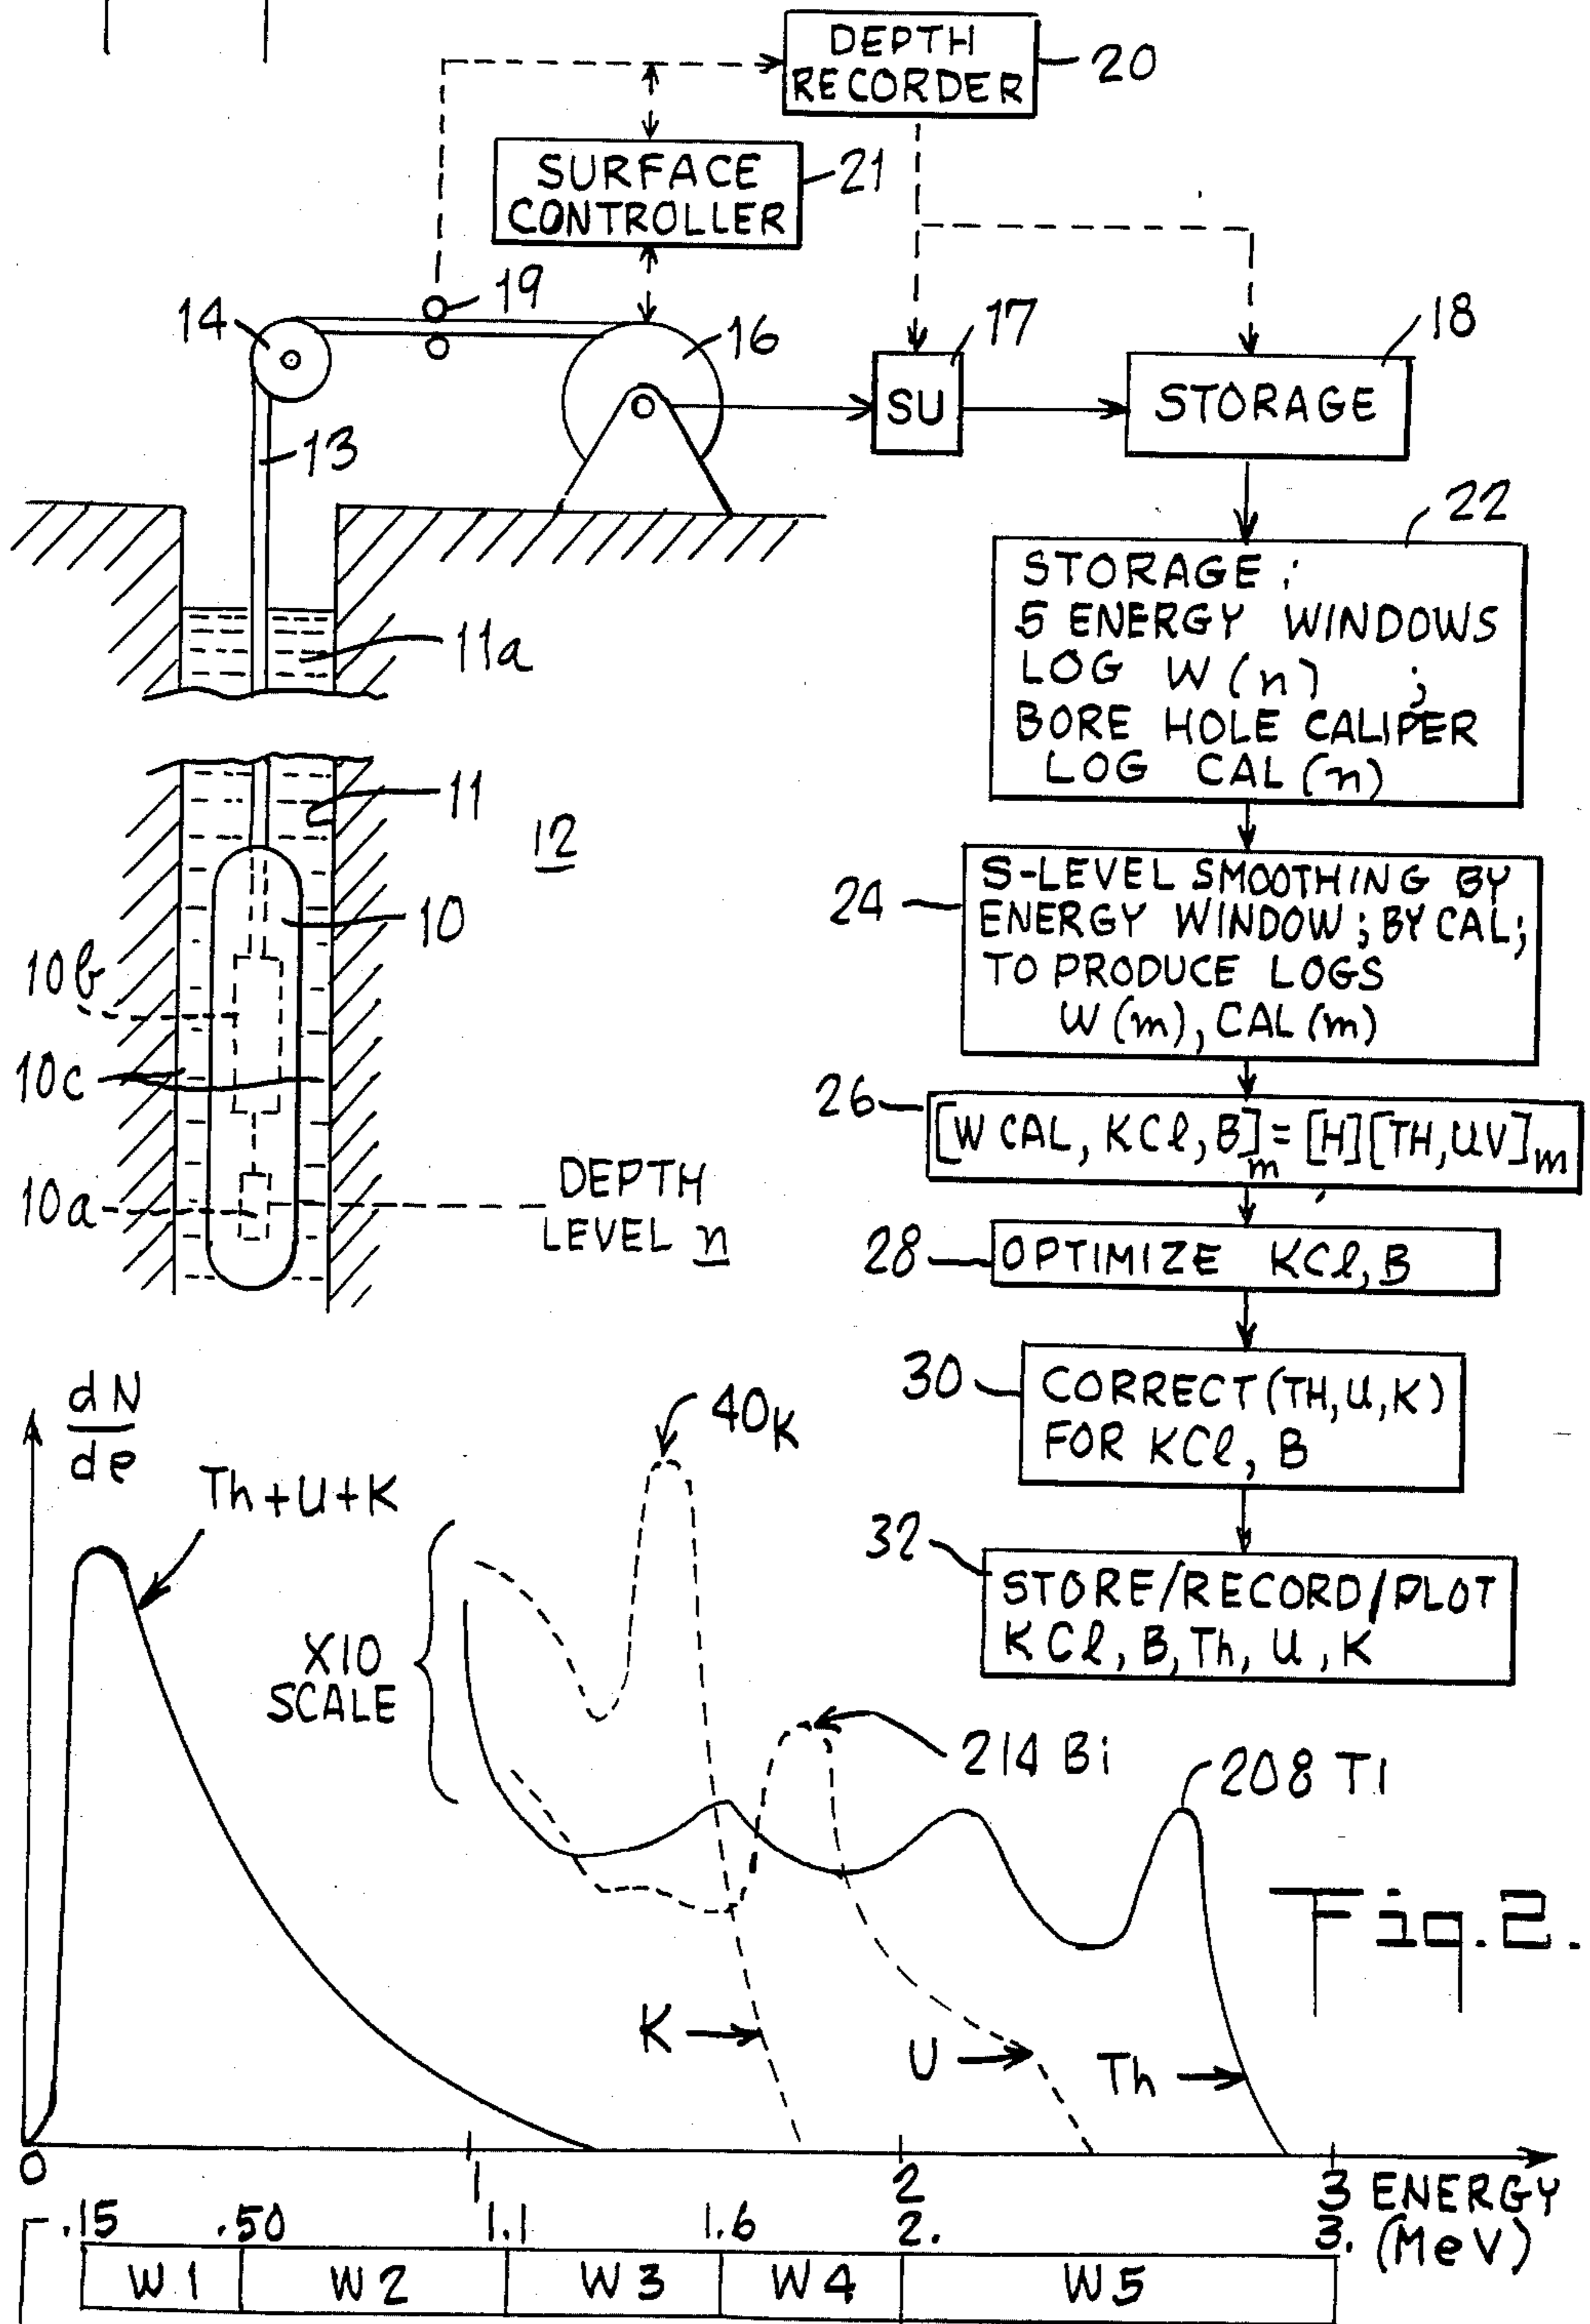 DEPTH
RECORDER
20
SURFACE
CONTROLLER
21
14
19
16
17
18
SU
STORAGE
13
22
STORAGE:
5 ENERGY WINDOWS
LOG W(n) ;
BORE HOLE CALIPER
LOG CAL(n)
11a
11
12
10
24
S-LEVEL SMOOTHING BY
ENERGY WINDOW; BY CAL;
TO PRODUCE LOGS
W(m), CAL(m)
10b
10c
26
[W CAL, KCl, B]m = [H][TH, UV]m
10a
DEPTH
LEVEL n
28
OPTIMIZE KCl, B
30
CORRECT (TH, U, K)
FOR KCl, B
32
STORE/RECORD/PLOT
KCl, B, Th, U, K
dN
de
Th+U+K
40K
X10
SCALE
214 Bi
208 Tl
Fig. 2.
K
U
Th
0
1
2
3 ENERGY
.15 .50 1.1 1.6 2. 3. (MeV)
W1 W2 W3 W4 W5